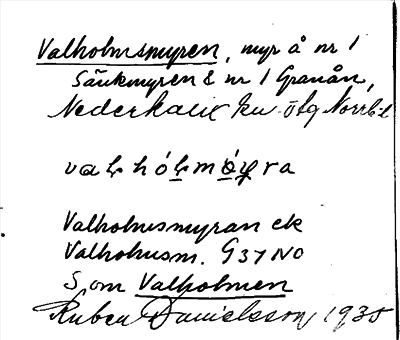 Valholmsmyren, myr å nr 1
Sänkmyren & nr 1 Granån,
Nederkalix sn ötg Norrb. l
Valholmsmyran ek
Valholmsm. G37 NO
S om Valholmen
Ruben Danielsson 1935